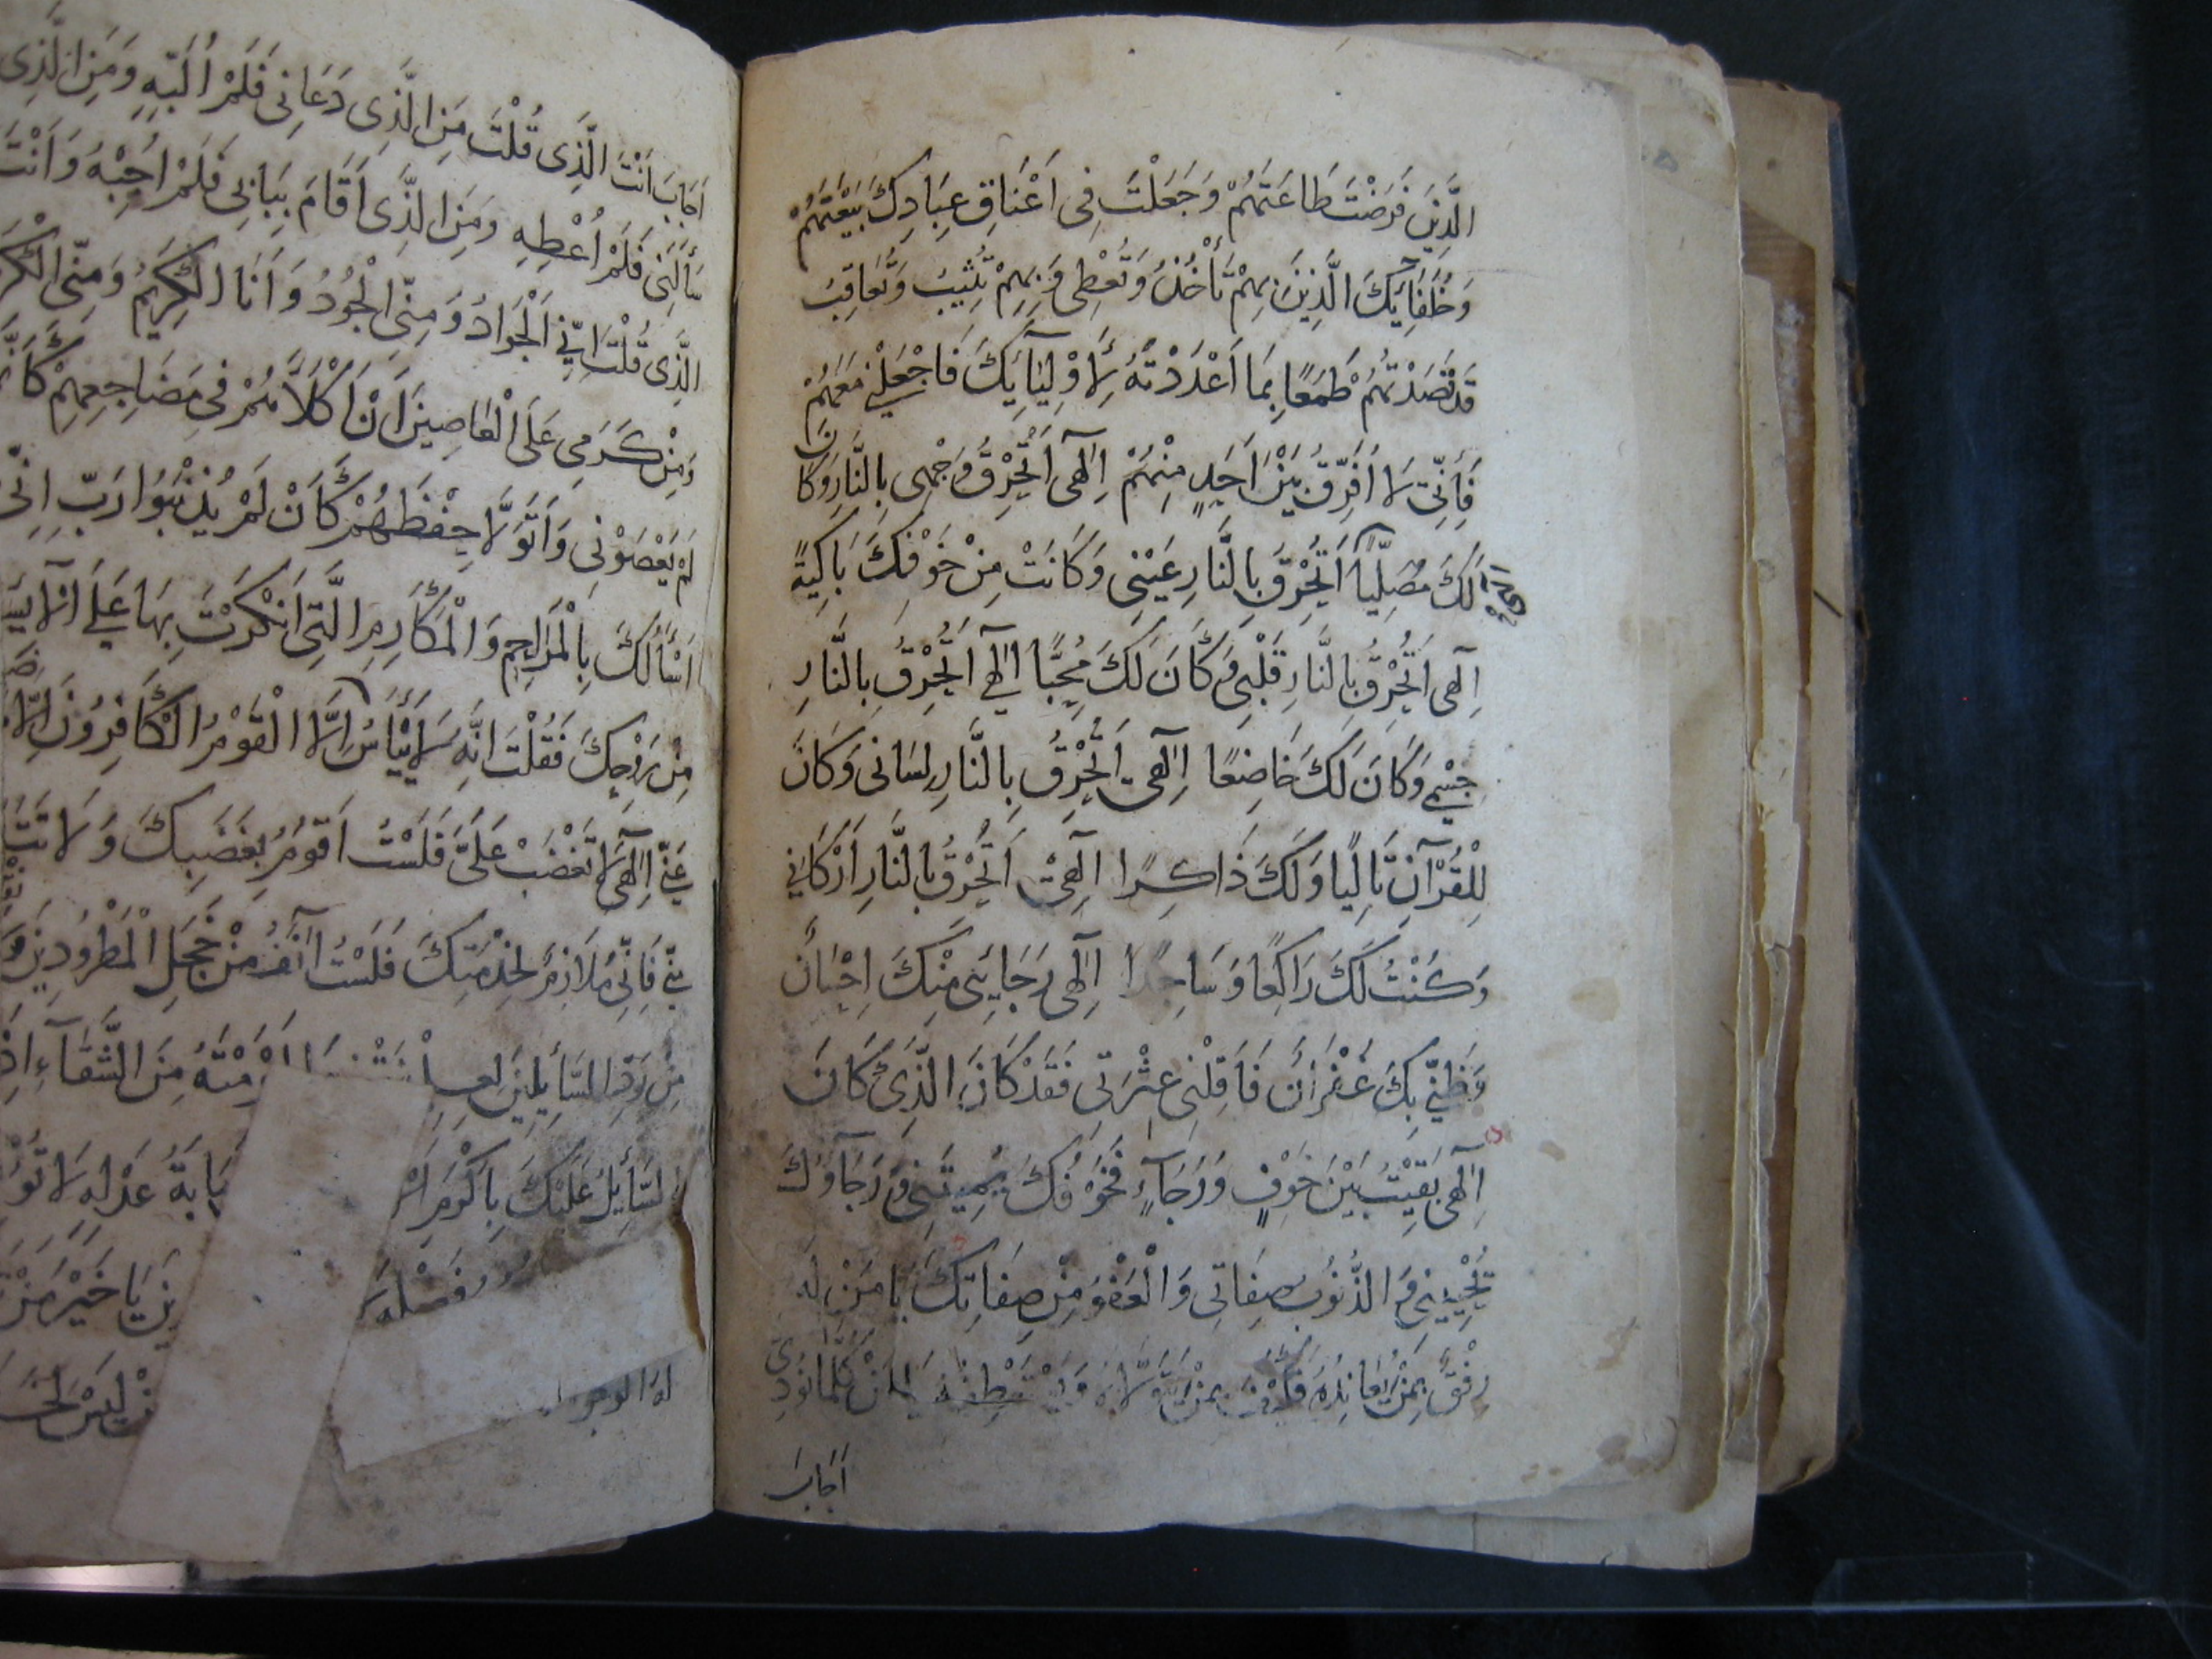 الَّذِينَ فَرَضْتَ طَاعَتَهُمْ وَجَعَلْتَ فِى اَعْنَاقِ عِبَادِكَ بَيْعَتَهُمْ
وَخُلَفَائِكَ الَّذِينَ بِهِمْ تَأْخُذُ وَتُعْطِى وَبِهِمْ تُثِيبُ وَتُعَاقِبُ
قَدْ قَصَدْتُهُمْ طَمَعًا بِمَا اَعْدَدْتَهُ لِاَوْلِيَآئِكَ فَاجْعَلْنِى مَعَهُمْ
فَاِنِّى لَا اُفَرِّقُ بَيْنَ اَحَدٍ مِنْهُمْ اِلٰهِى اَتُحْرِقُ وَجْهِى بِالنَّارِ وَكَانَ
لَكَ مُصَلِّيًا اَتُحْرِقُ بِالنَّارِ عَيْنِى وَكَانَتْ مِنْ خَوْفِكَ بَاكِيَةً
الهى
اِلٰهِى اَتُحْرِقُ بِالنَّارِ قَلْبِى وَكَانَ لَكَ مُحِبًّا اِلٰهِى اَتُحْرِقُ بِالنَّارِ
جِسْمِى وَكَانَ لَكَ خَاضِعًا اِلٰهِى اَتُحْرِقُ بِالنَّارِ لِسَانِى وَكَانَ
لِلْقُرْآنِ تَالِيًا وَلَكَ ذَاكِرًا اِلٰهِى اَتُحْرِقُ بِالنَّارِ اَرْكَانِى
وَكُنْتُ لَكَ رَاكِعًا وَسَاجِدًا اِلٰهِى رَجَائِى مِنْكَ اِحْسَانٌ
وَظَنِّى بِكَ غُفْرَانٌ فَاَقِلْنِى عَثْرَتِى فَقَدْ كَانَ الَّذِى كَانَ
اِلٰهِى بَقِيتُ بَيْنَ خَوْفٍ وَرَجَآءٍ فَخَوْفُكَ يُمِيتُنِى وَرَجَآؤُكَ
يُحْيِينِى وَالذُّنُوبُ صِفَاتِى وَالْعَفْوُ مِنْ صِفَاتِكَ يَا مَنْ لَهُ
رِفْقٌ بِمَنْ يُعَانِدُهُ فَكَيْفَ بِمَنْ يَتَوَلَّاهُ يَا مَنْ كُلَّمَا نُودِىَ
اَجَابَ
اَجَابَ اَنْتَ الَّذِى قُلْتَ مَنِ الَّذِى دَعَانِى فَلَمْ اُلَبِّهِ وَمَنِ الَّذِى
سَأَلَنِى فَلَمْ اُعْطِهِ وَمَنِ الَّذِى اَقَامَ بِبَابِى فَلَمْ اُجِبْهُ وَاَنْتَ
الَّذِى قُلْتَ اِنِّى الْجَوَادُ وَمِنِّى الْجُودُ وَاَنَا الْكَرِيمُ وَمِنِّى الْكَرَمُ
وَمِنْ كَرَمِى عَلَى الْعَاصِينَ اَنْ اَكْلَأَهُمْ فِى مَضَاجِعِهِمْ كَاَنَّهُمْ
لَمْ يَعْصَوْنِى وَاَتَوَلَّا حِفْظَهُمْ كَاَنْ لَمْ يُذْنِبُوا رَبِّ اِنِّى
اَسْأَلُكَ بِالْمَرَاحِمِ وَالْمَكَارِمِ الَّتِى اَنْكَرْتَ بِهَا عَلَى
مِنْ رَوْحِكَ فَقُلْتَ اِنَّهُ لَا يَيْأَسُ اِلَّا الْقَوْمُ الْكَافِرُونَ
عَنِّى اِلٰهِى لَا تَغْضَبْ عَلَىَّ فَلَسْتُ اَقُومُ بِغَضَبِكَ وَلَا
فَاِنِّى مُلَازِمٌ لِخِدْمَتِكَ فَلَسْتُ مِنْ خَجَلِ الْمَطْرُودِينَ
مِنَ الشَّقَآءِ
السَّائِلُ عَلَيْكَ بَابَهُ عَدْلِهِ لَا
فَضْلِهِ يَا خَيْرَ مَنْ
لَيْسَ